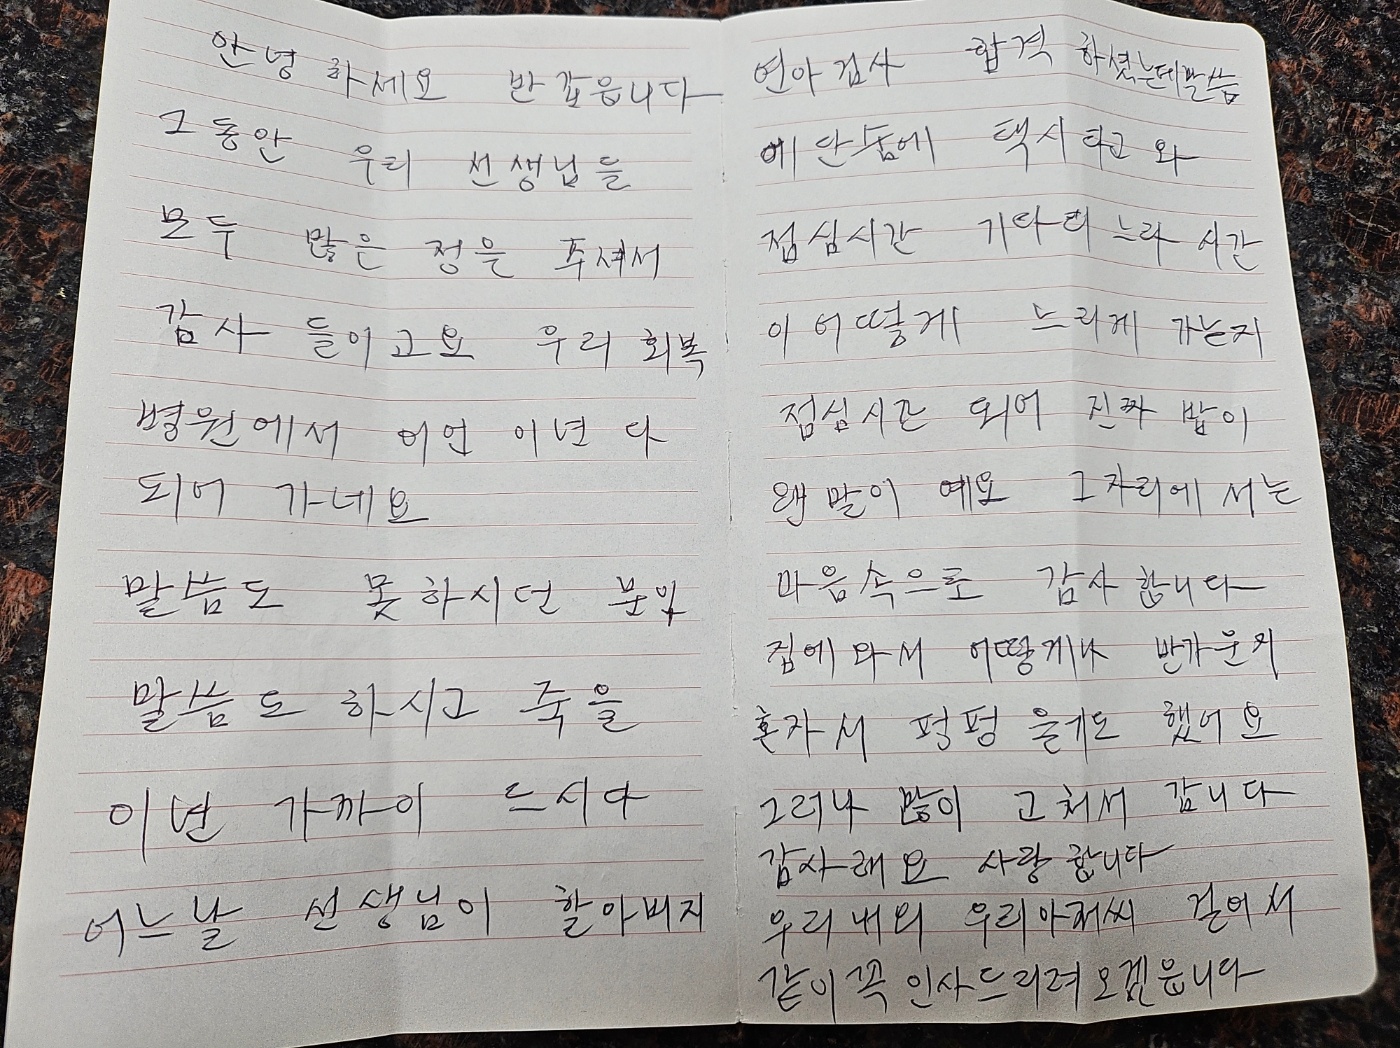 안녕 하세요 반갑읍니다
그동안 우리 선생님들
모두 많은 정은 주셔서
감사 들이고요 우리 회복
병원에서 어언 이년 다
되어 가네요
말씀도 못하시던 분이
말씀도 하시고 죽을
이년 가까이 드시다
어느날 선생님이 할아버지
연아검사 합격 하셨는데말씀
에 단숨에 택시 타고 와
점심시간 기다리느라 시간
이 어떻게 느리게 가는지
점심시간 되어 진짜 밥이
왠 말이 예요 그자리에서는
마음속으로 감사합니다
집에 와서 어떻게나 반가운지
혼자서 펑펑 울기도 했어요
그러나 많이 고쳐서 갑니다
감사래요 사랑합니다
우리내외 우리아저씨 걸어서
같이 꼭 인사드리려 오겠읍니다